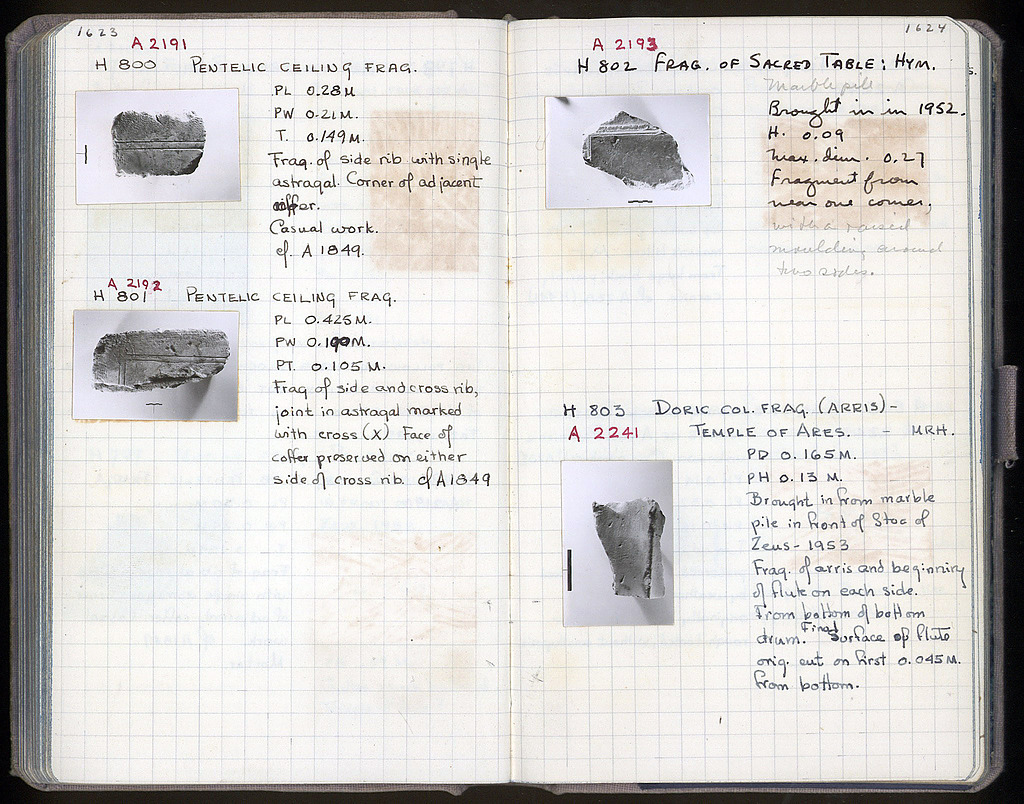 1623
A 2191
H 800 PENTELIC CEILING FRAG.
PL 0.28M
PW 0.21M.
T. 0.149M.
Frag. of side rib with single
astragal. Corner of adjacent
coffer.
Casual work.
cf. A 1849.
A 2192
H 801 PENTELIC CEILING FRAG.
PL 0.425M.
PW 0.190M.
PT. 0.105M.
Frag of side and cross rib,
joint in astragal marked
with cross (X) Face of
coffer preserved on either
side of cross rib. cf A 1849
1624
A 2193
H 802 FRAG. OF SACRED TABLE: HYM.
Marble pile
Brought in in 1952.
H. 0.09
Max. dim. 0.27
Fragment from
near one corner,
with a raised
moulding around
two sides.
H 803 DORIC COL. FRAG. (ARRIS) –
A 2241 TEMPLE OF ARES. – MRH.
PD 0.165M.
PH 0.13 M.
Brought in from marble
pile in front of Stoa of
Zeus – 1953
Frag. of arris and beginning
of flute on each side.
From bottom of bottom
drum. Final Surface of flute
orig. cut on first 0.045M.
from bottom.